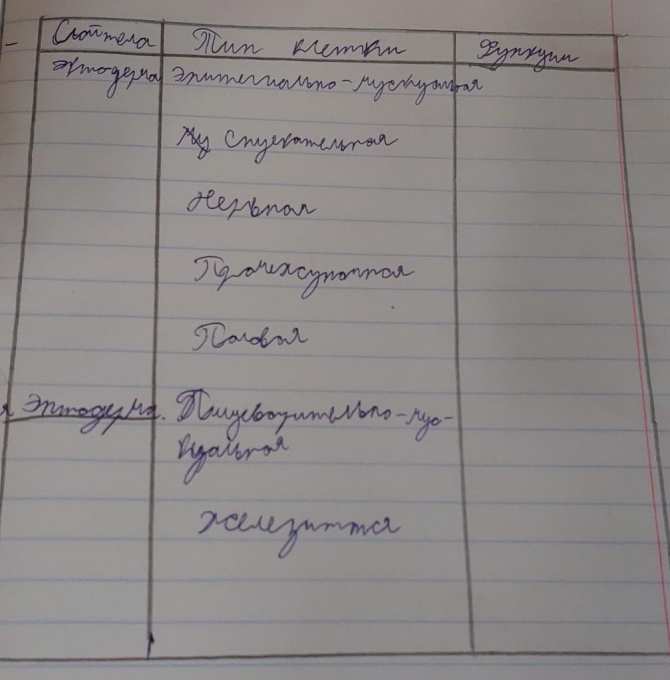 Слои тела Тип клетки Функции
Эктодерма Эпителиально-мускульная
Стрекательная
Нервная
Промежуточная
Половая
Энтодерма. Пищеварительно-мус-
кульная
Железистая